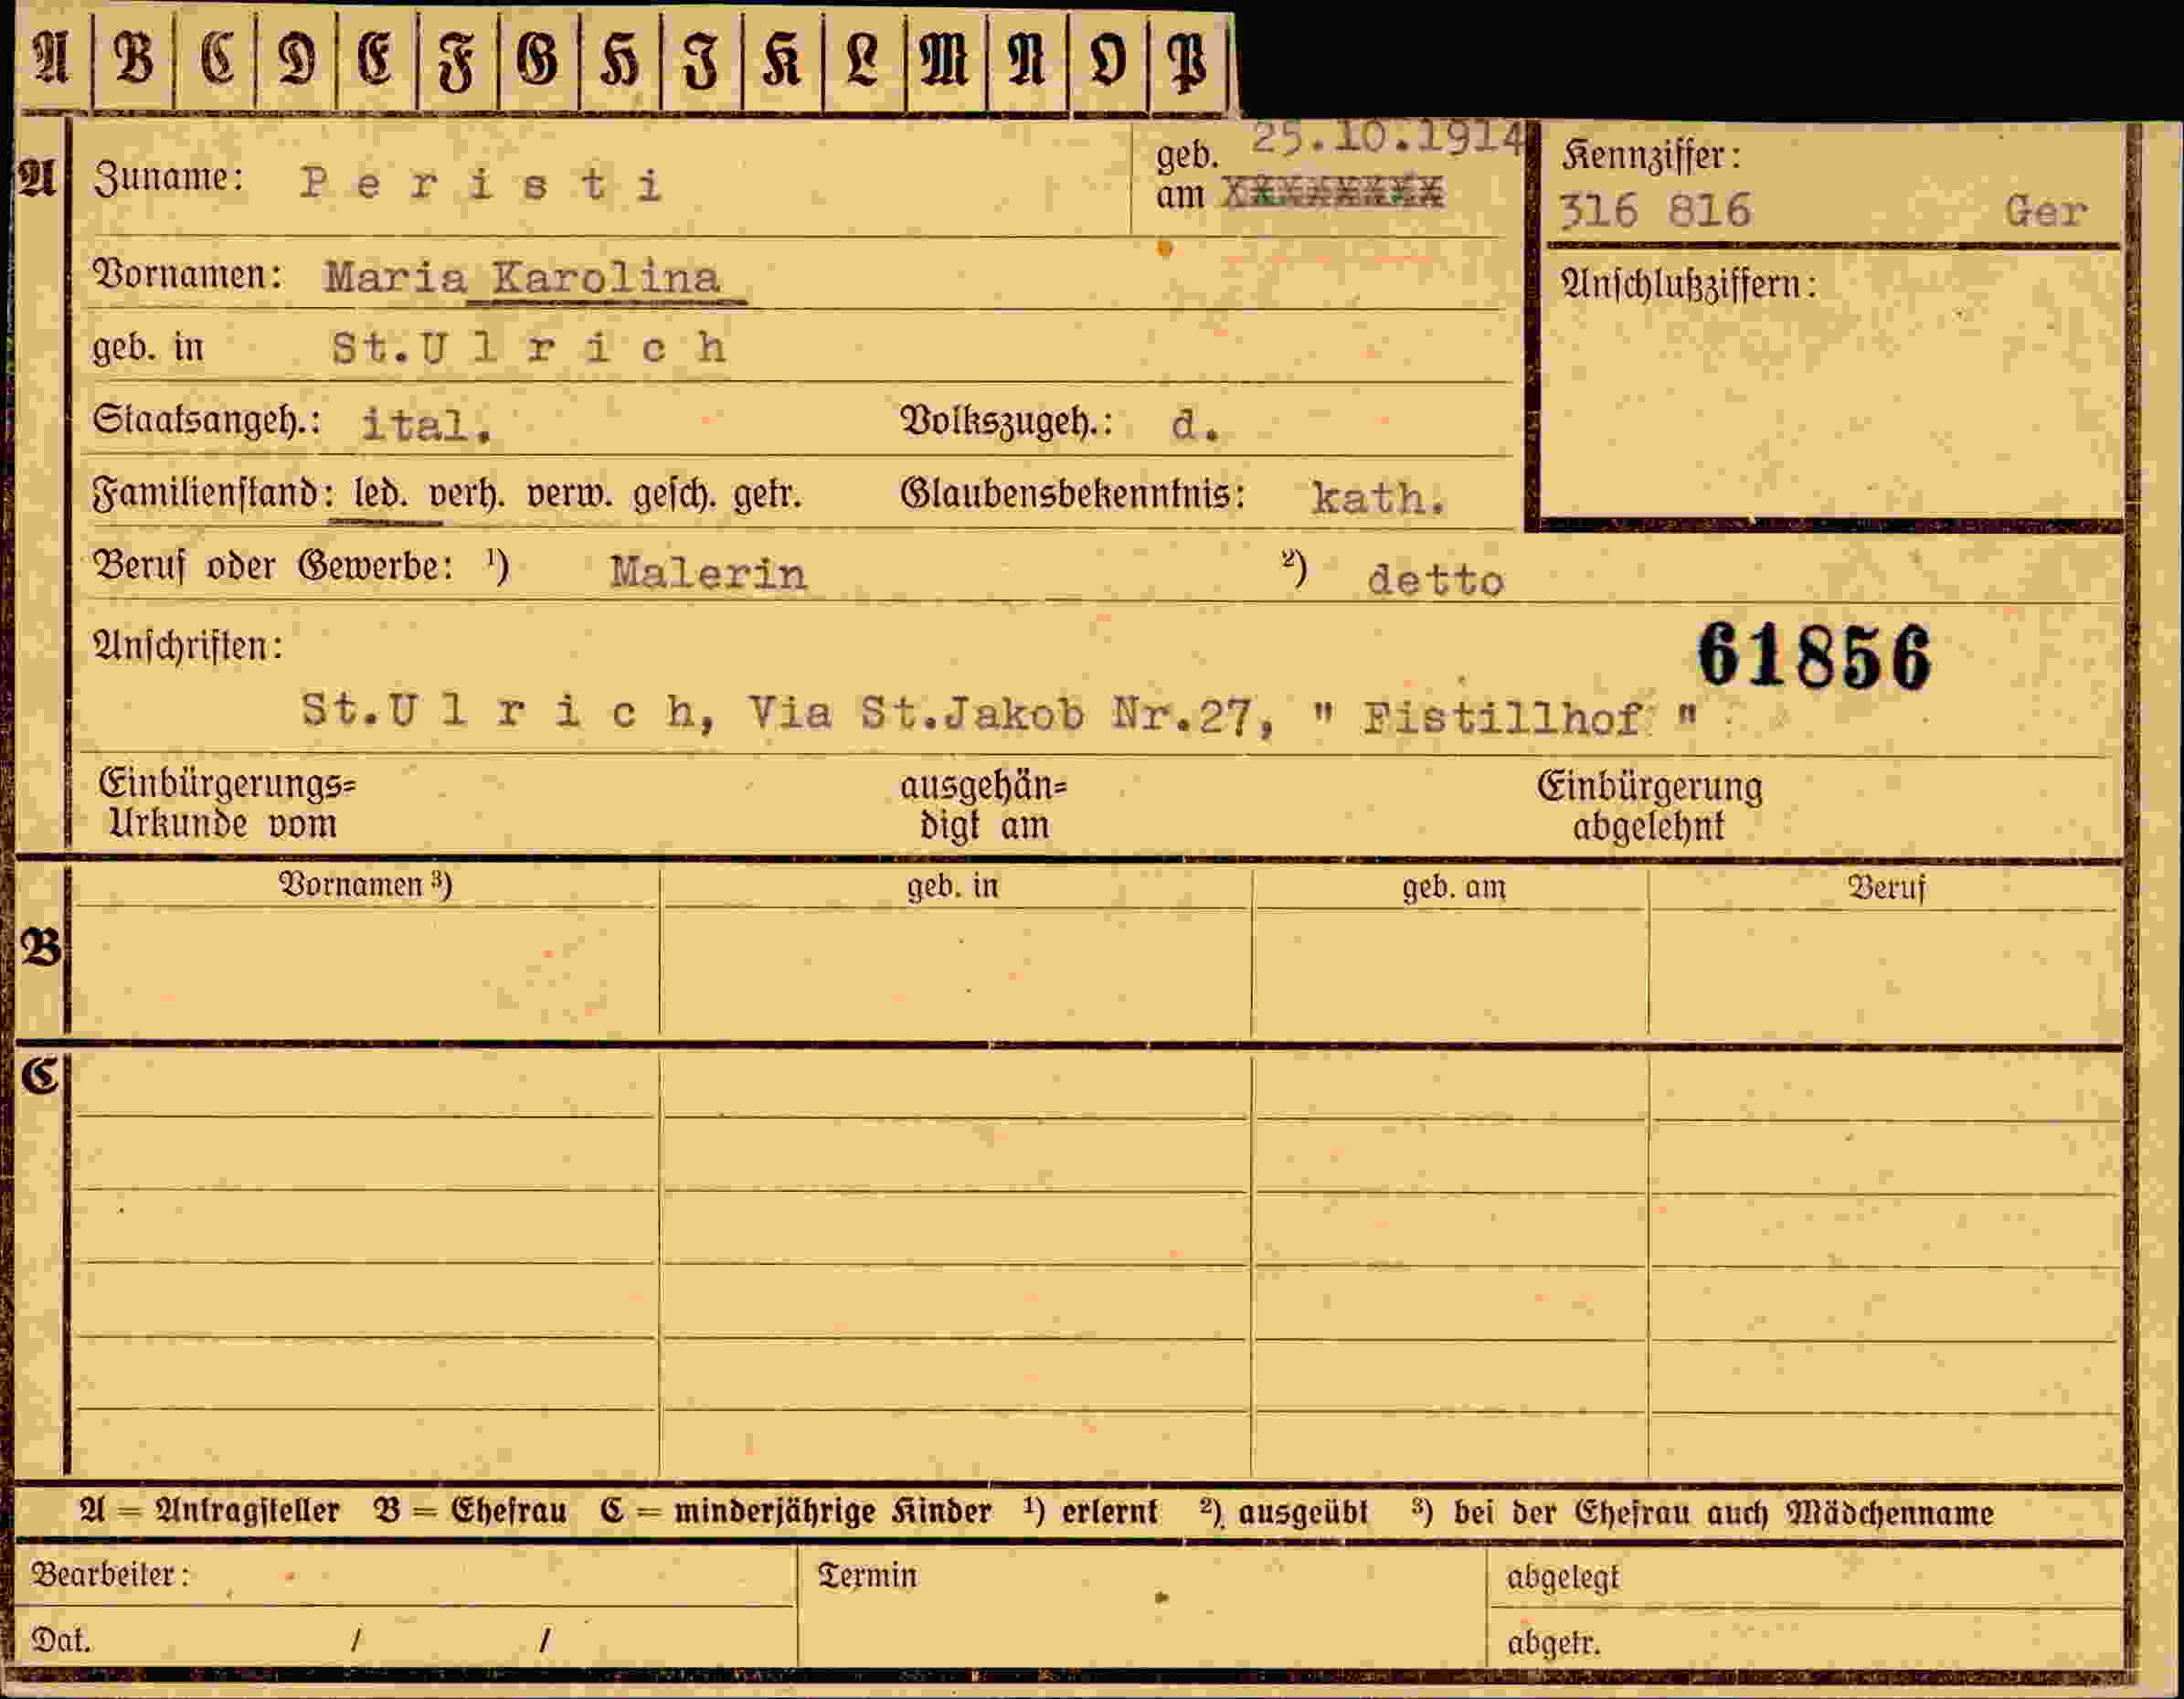 A B C D E F G H J K L M N O P
A
Zuname: Peristi
geb. am 25.10.1914
Kennziffer:
316 816 Ger
Vornamen: Maria Karolina
Anschlußziffern:
geb. in St.Ulrich
Staatsangeh.: ital. Volkszugeh.: d.
Familienstand: led. verh. verw. gesch. getr. Glaubensbekenntnis: kath.
Beruf oder Gewerbe: ¹) Malerin ²) detto
Anschriften:
61856
St.Ulrich, Via St.Jakob Nr.27, " Fistillhof "
Einbürgerungs= ausgehän= Einbürgerung
Urkunde vom digt am abgelehnt
Vornamen ³) geb. in geb. am Beruf
B
C
A = Antragsteller B = Ehefrau C = minderjährige Kinder ¹) erlernt ²) ausgeübt ³) bei der Ehefrau auch Mädchenname
Bearbeiter: Termin abgelegt
Dat. / / abgetr.